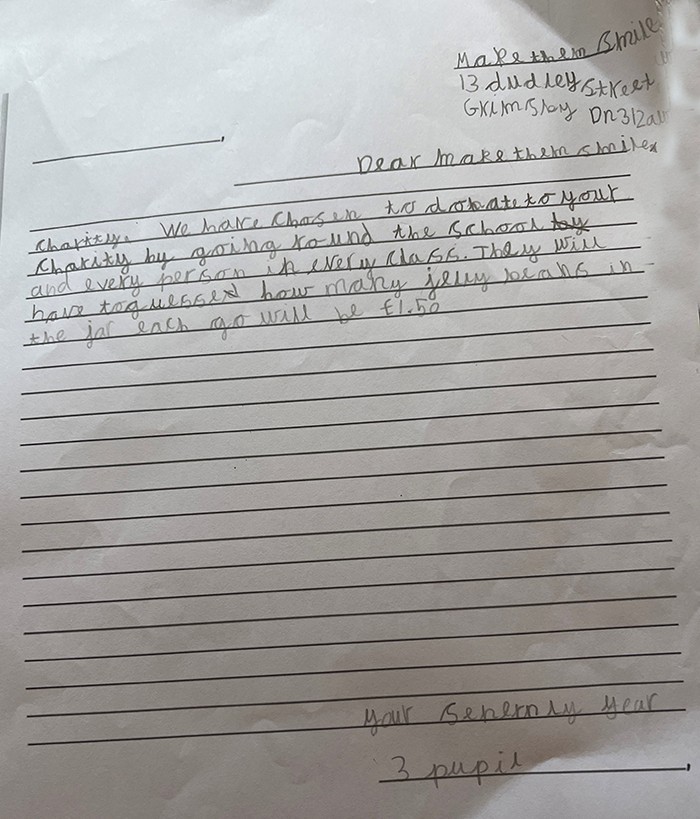 Make them Smile
13 dudley Street
Grimsby Dn312aw
Dear make them smile
charity. We have chosen to donate to your
Charity by going round the school by
and every person in every class. They will
have to guessed how many jelly beans in
the jar each go will be £1.50
your senernly year
3 pupil